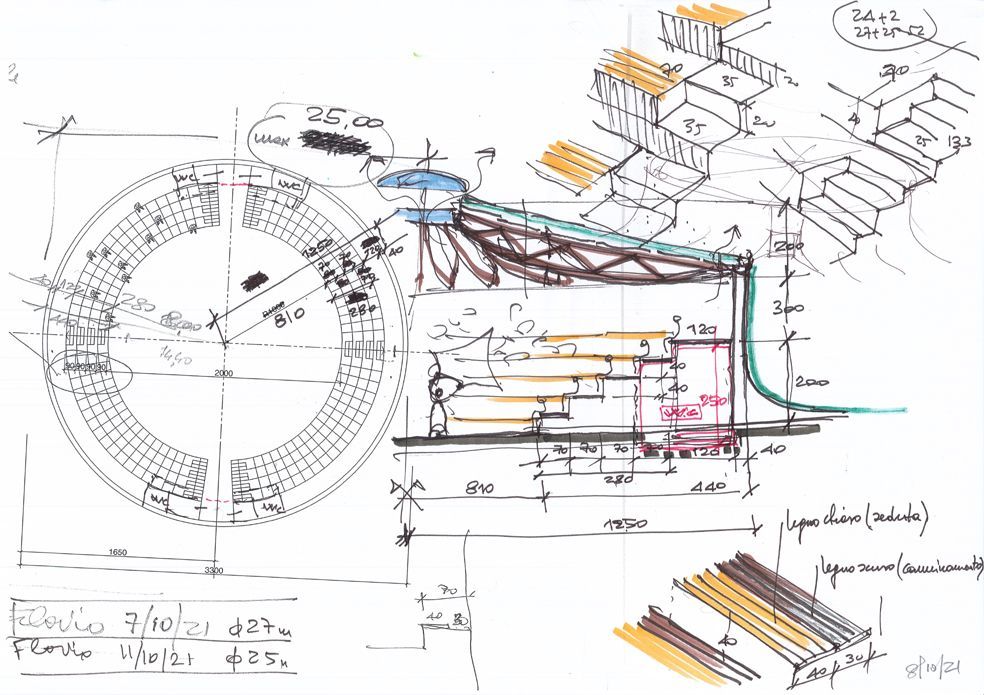 24+2
27+25=52
25,00
max
70
35
20
35
20
40
25
13,3
WC
WC
1250
40
810
280
280
14,40
90 90 90 90 90
2000
WC
WC
1650
3300
200
300
200
120
40
40
250
W.C.
70 70 70
120
40
280
440
810
1250
legno chiaro (seduta)
legno scuro (camminamento)
70
40 30
40
40 30
Flavio 7/10/21 φ27m
Flavio 11/10/21 φ25m
8/10/21